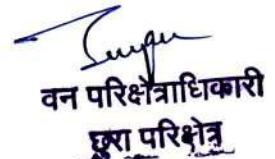 वन परिक्षेत्राधिकारी
छुरा परिक्षेत्र